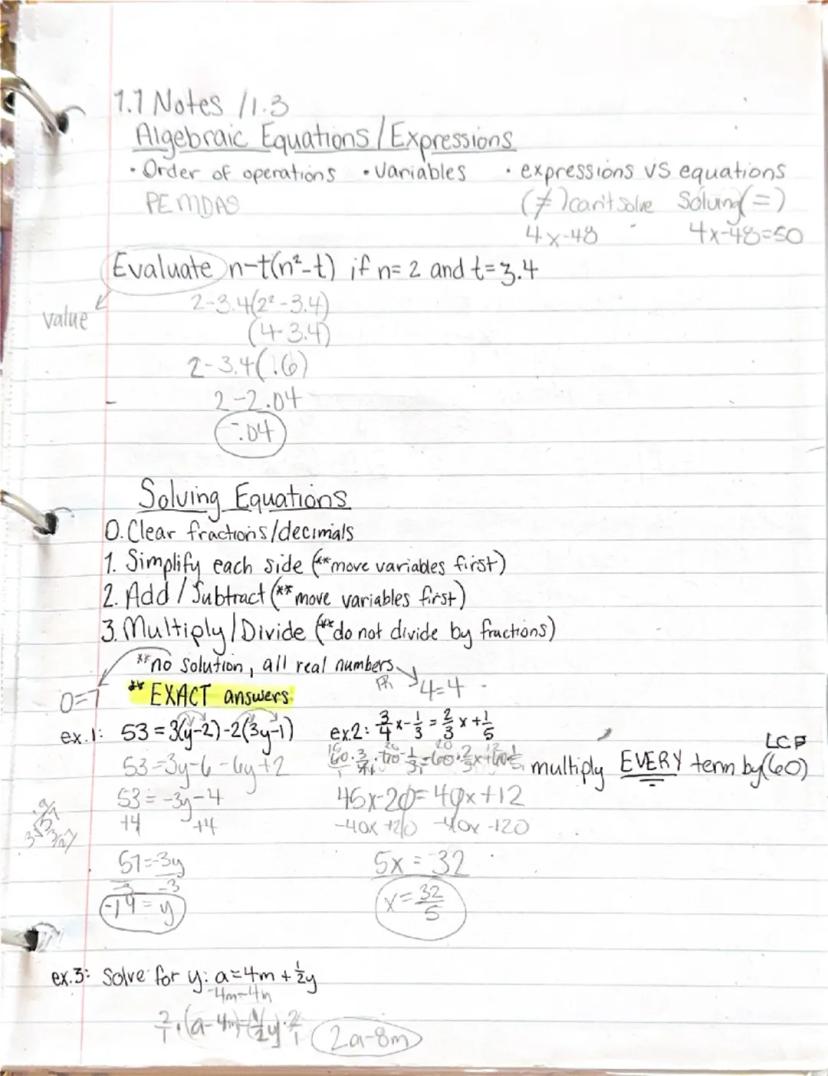 1.1 Notes / 1.3
Algebraic Equations/Expressions
• Order of operations • Variables • expressions vs equations
PEMDAS (≠) can't solve Solving (=)
4x-48 4x-48=50
Evaluate n-t(n²-t) if n=2 and t=3.4
value
2-3.4(2²-3.4)
(4-3.4)
2-3.4(.6)
2-2.04
-.04
Solving Equations
0. Clear fractions/decimals
1. Simplify each side (**move variables first)
2. Add/Subtract (**move variables first)
3. Multiply/Divide (**do not divide by fractions)
**no solution, all real numbers
0=7 ** EXACT answers ℝ 4=4
ex.1: 53=3(y-2)-2(3y-1) ex.2: 3/4 x - 1/3 = 2/3 x + 1/5
LCD
53=3y-6-6y+2 multiply EVERY term by (60)
53=-3y-4 45x-20=40x+12
+4 +4 -40x+20 -40x+20
57=-3y 5x=32
-3 -3
-19=y x=32/5
ex.3: Solve for y: a=4m+½y
-4m-4m
2/1·(a-4m)=(½y)·2/1 2a-8m